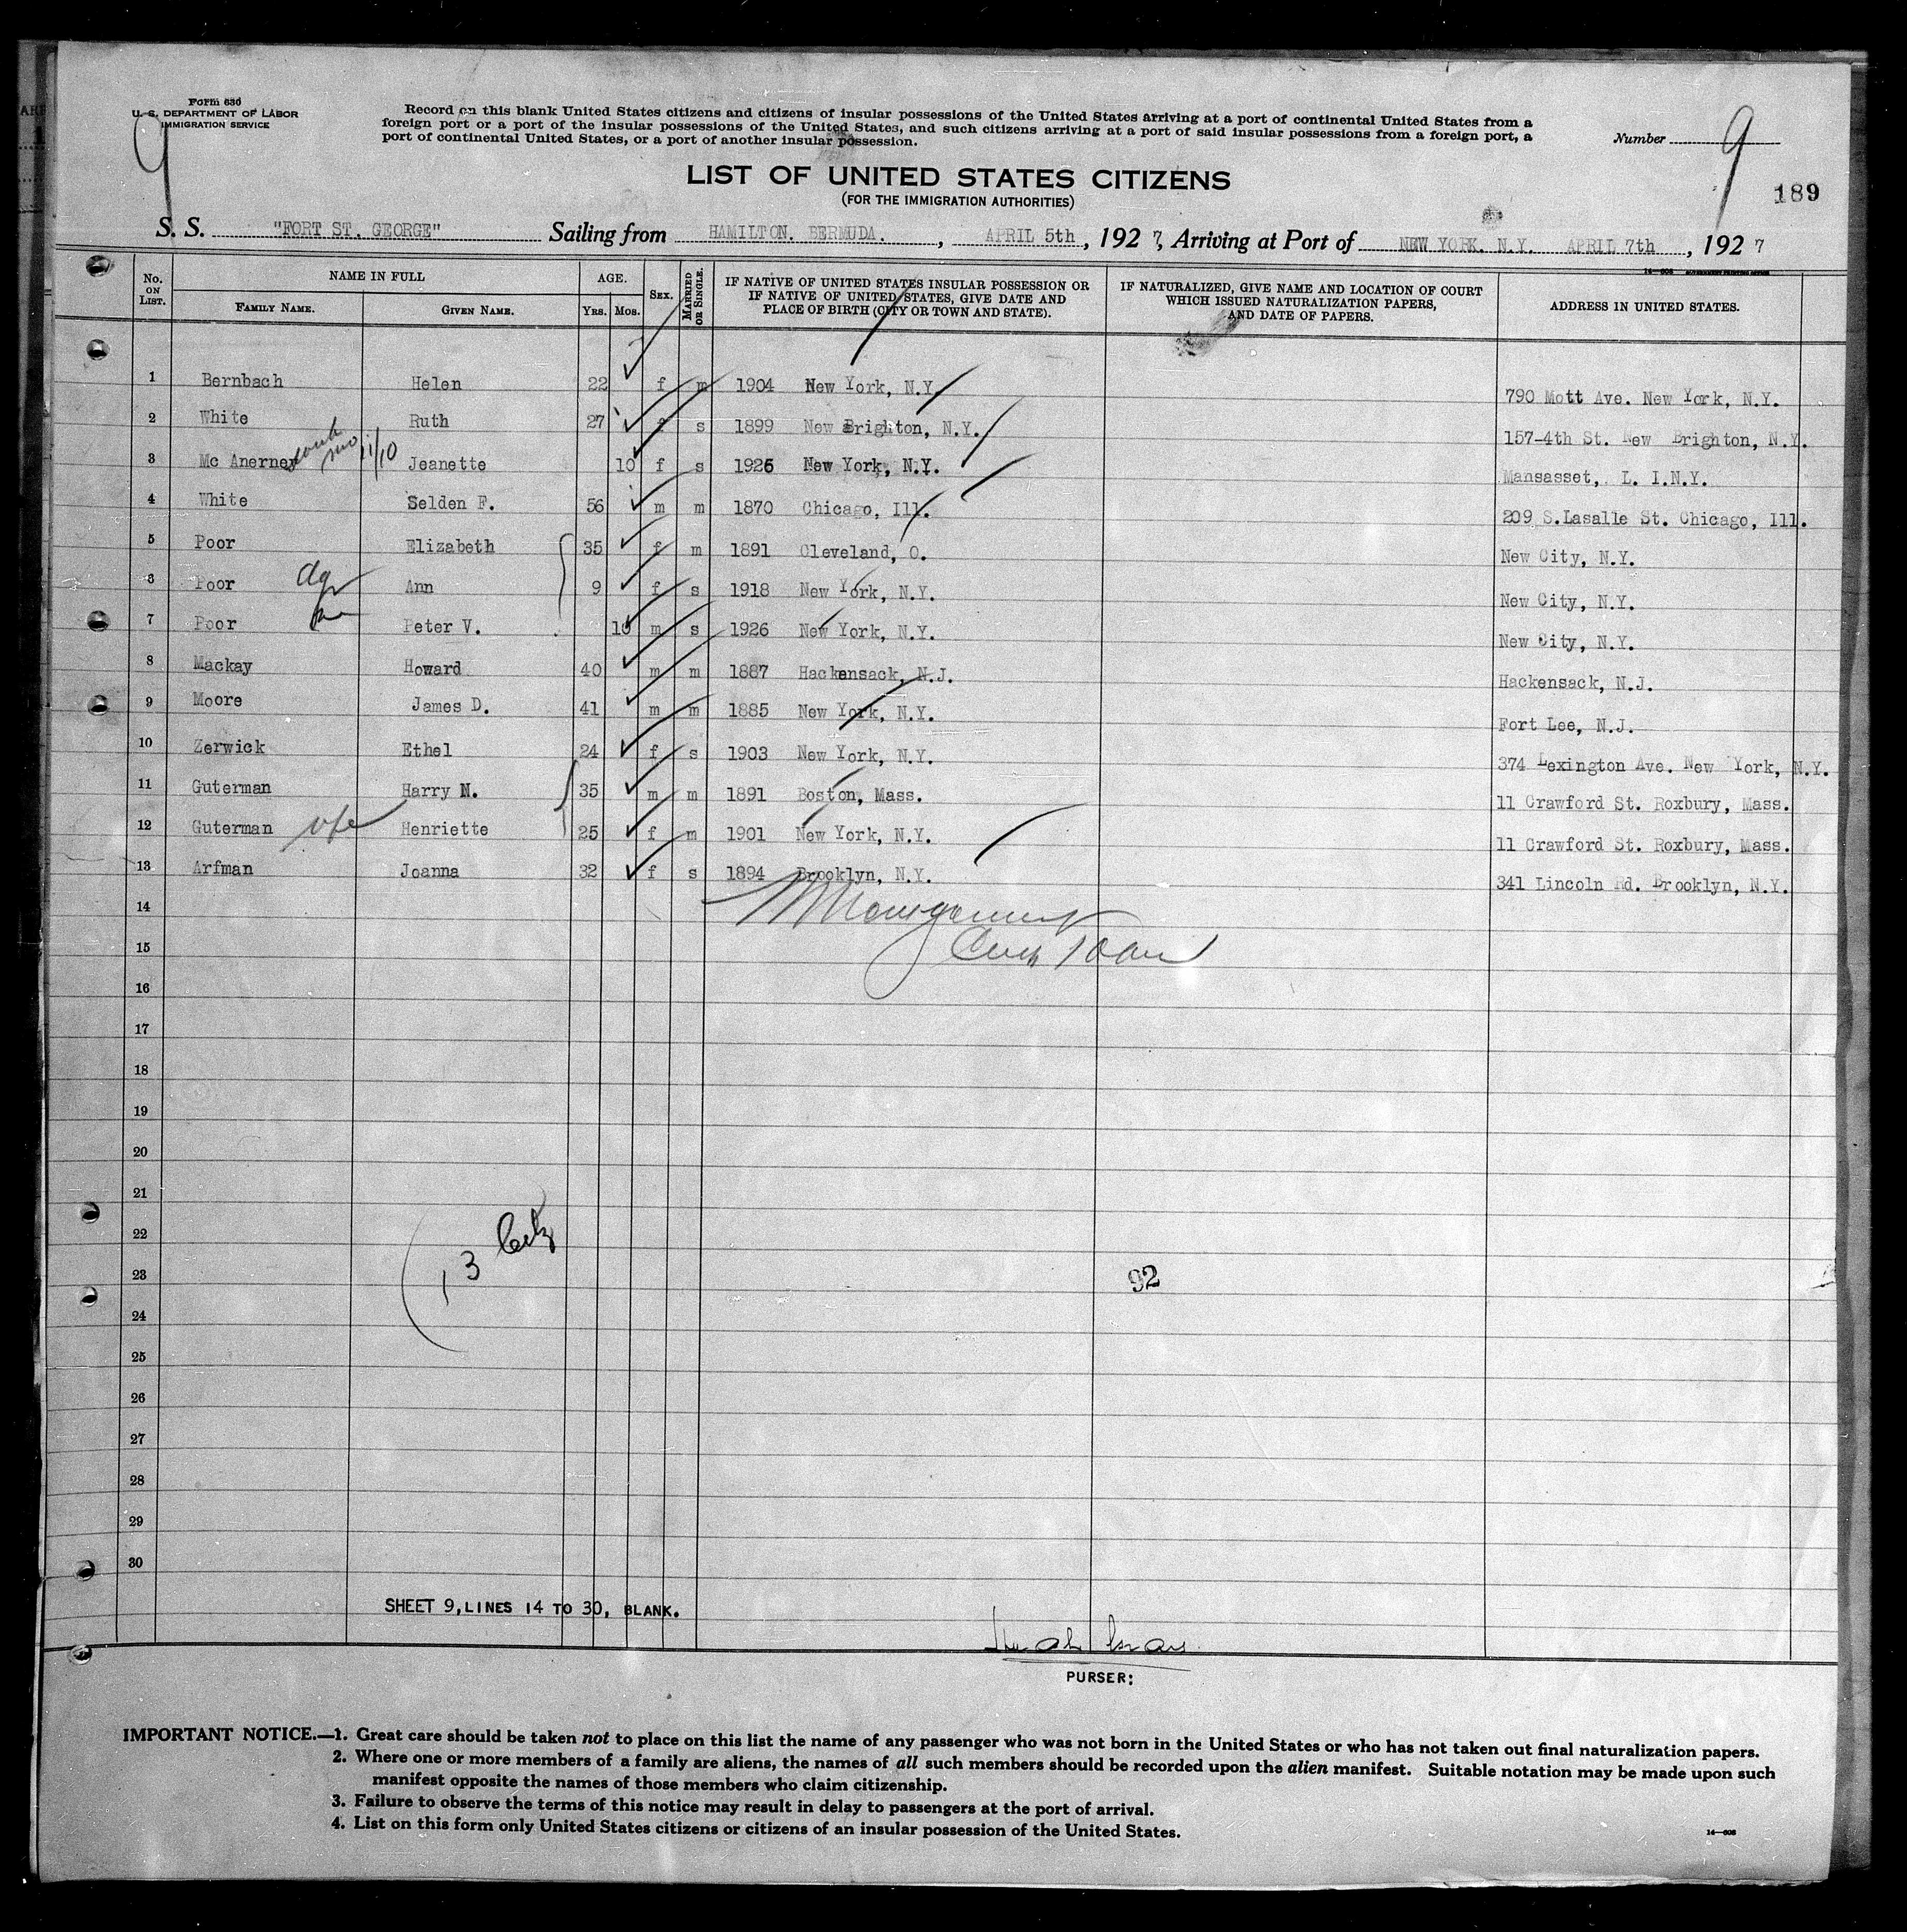 Form 630
U. S. DEPARTMENT OF LABOR
IMMIGRATION SERVICE
9
Record on this blank United States citizens and citizens of insular possessions of the United States arriving at a port of continental United States from a
foreign port or a port of the insular possessions of the United States, and such citizens arriving at a port of said insular possessions from a foreign port, a
port of continental United States, or a port of another insular possession.
Number 9
189
LIST OF UNITED STATES CITIZENS
(FOR THE IMMIGRATION AUTHORITIES)
S. S. "FORT ST. GEORGE" Sailing from HAMILTON. BERMUDA. , APRIL 5th , 1927, Arriving at Port of NEW YORK. N.Y. APRIL 7th , 1927
No. ON LIST. NAME IN FULL FAMILY NAME. GIVEN NAME. AGE. YRS. MOS. SEX. MARRIED OR SINGLE. IF NATIVE OF UNITED STATES INSULAR POSSESSION OR IF NATIVE OF UNITED STATES, GIVE DATE AND PLACE OF BIRTH (CITY OR TOWN AND STATE). IF NATURALIZED, GIVE NAME AND LOCATION OF COURT WHICH ISSUED NATURALIZATION PAPERS, AND DATE OF PAPERS. ADDRESS IN UNITED STATES.
1 Bernbach Helen 22 f m 1904 New York, N.Y. 790 Mott Ave. New York, N.Y.
2 White Ruth 27 f s 1899 New Brighton, N.Y. 157-4th St. New Brighton, N.Y.
3 Mc Anerney 11/10 Jeanette 10 f s 1926 New York, N.Y. Mansasset, L. I.N.Y.
4 White Selden F. 56 m m 1870 Chicago, Ill. 209 S.Lasalle St. Chicago, Ill.
5 Poor Elizabeth 35 f m 1891 Cleveland, O. New City, N.Y.
6 Poor Ann 9 f s 1918 New York, N.Y. New City, N.Y.
7 Poor Peter V. 10 m s 1926 New York, N.Y. New City, N.Y.
8 Mackay Howard 40 m m 1887 Hackensack, N.J. Hackensack, N.J.
9 Moore James D. 41 m m 1885 New York, N.Y. Fort Lee, N.J.
10 Zerwick Ethel 24 f s 1903 New York, N.Y. 374 Lexington Ave. New York, N.Y.
11 Guterman Harry N. 35 m m 1891 Boston, Mass. 11 Crawford St. Roxbury, Mass.
12 Guterman wfe Henriette 25 f m 1901 New York, N.Y. 11 Crawford St. Roxbury, Mass.
13 Arfman Joanna 32 f s 1894 Brooklyn, N.Y. 341 Lincoln Rd. Brooklyn, N.Y.
14
15
16
17
18
19
20
21
22
23 13 92
24
25
26
27
28
29
30
SHEET 9, LINES 14 TO 30, BLANK.
PURSER:
IMPORTANT NOTICE.—1. Great care should be taken not to place on this list the name of any passenger who was not born in the United States or who has not taken out final naturalization papers.
2. Where one or more members of a family are aliens, the names of all such members should be recorded upon the alien manifest. Suitable notation may be made upon such
manifest opposite the names of those members who claim citizenship.
3. Failure to observe the terms of this notice may result in delay to passengers at the port of arrival.
4. List on this form only United States citizens or citizens of an insular possession of the United States.
14—608